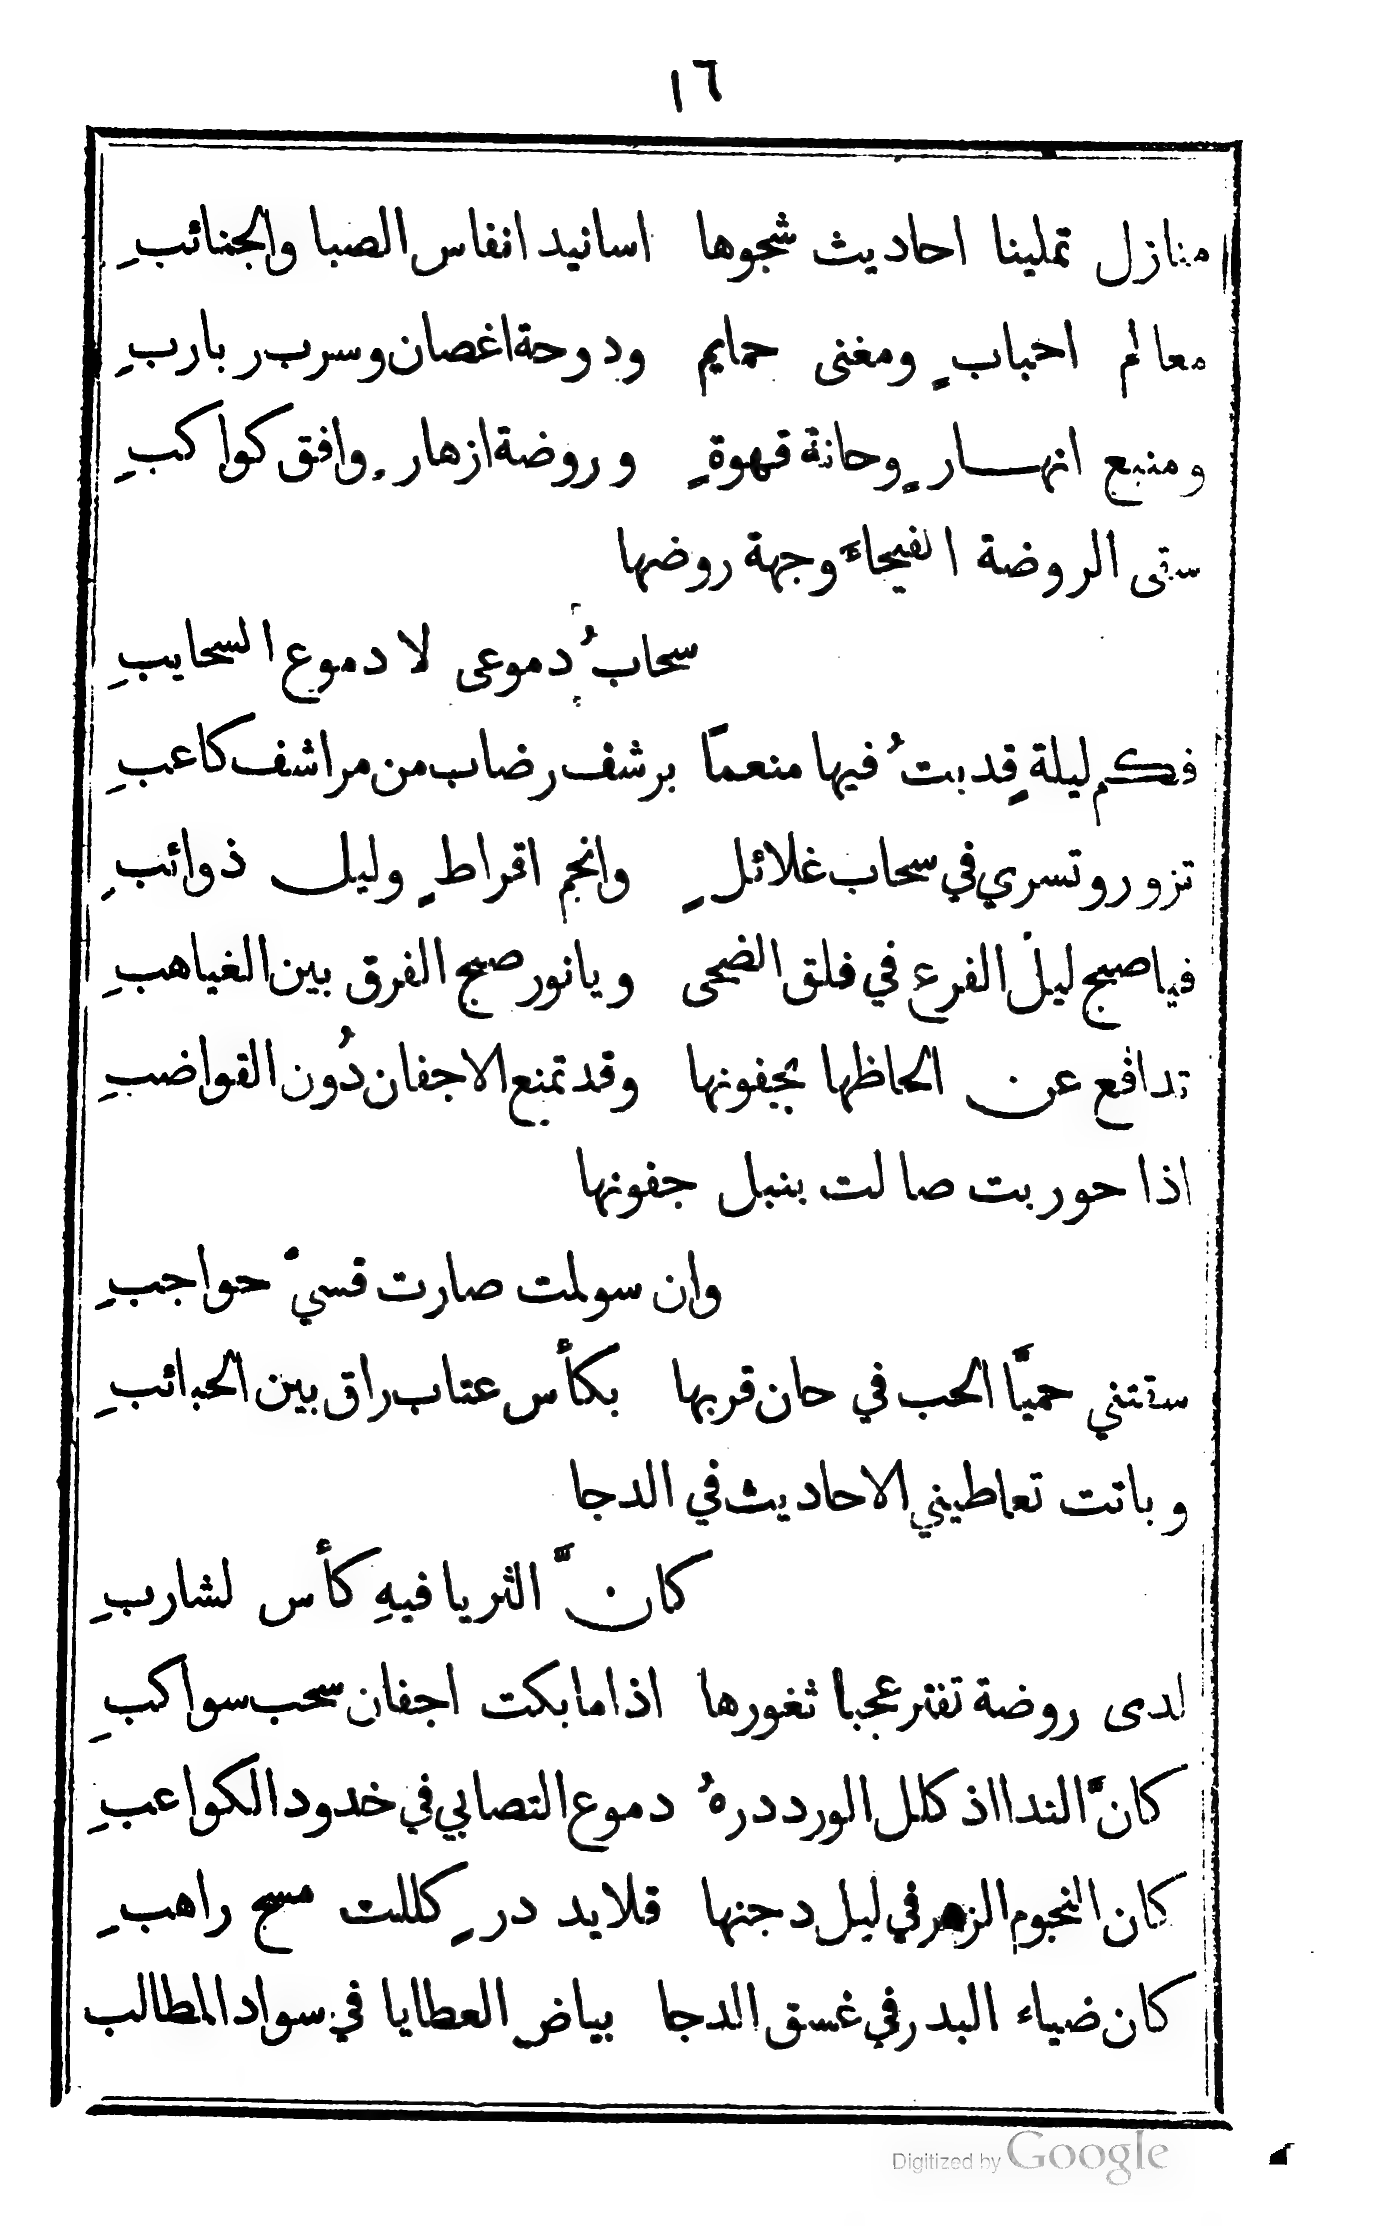 ١٦
منازل تملينا احاديث شجوها اسانيد انفاس الصبا والجنائبِ
معالم احبابٍ ومغنى حمايم ودوحة اغصان وسرب رباربِ
ومنبع انهارٍ وحانة قهوةٍ وروضة ازهارٍ وافق كواكبِ
سقى الروضة الفيحاءَ وجهة روضها
سحابُ دموعى لا دموع السحايبِ
فكم ليلةٍ قد بتُ فيها منعماً برشف رضاب من مراشف كاعبِ
تزور وتسري في سحاب غلائلٍ وانجم اقراطٍ وليل ذوائبِ
فيا صبح ليل الفرع في فلق الضحى ويا نور صبح الفرق بين الغياهبِ
تدافع عن الحاظها بجفونها وقد تمنع الاجفان دُون القواضبِ
اذا حوربت صالت بنبل جفونها
وان سولمت صارت قسيّ حواجبِ
سقتني حميَّا الحب في حان قربها بكأس عتاب راق بين الحبائبِ
وباتت تعاطيني الاحاديث في الدجا
كانَّ الثريا فيهِ كأس لشاربِ
لدى روضة تفتر عجبا ثغورها اذا ما بكت اجفان سحب سواكبِ
كانَّ الندا اذ كلل الورد درهُ دموع التصابي في خدود الكواعبِ
كان النجوم الزهر في ليل دجنها قلايد درٍ كللت مسح راهبِ
كان ضياء البدر في غسق الدجا بياض العطايا في سواد المطالب
Digitized by Google